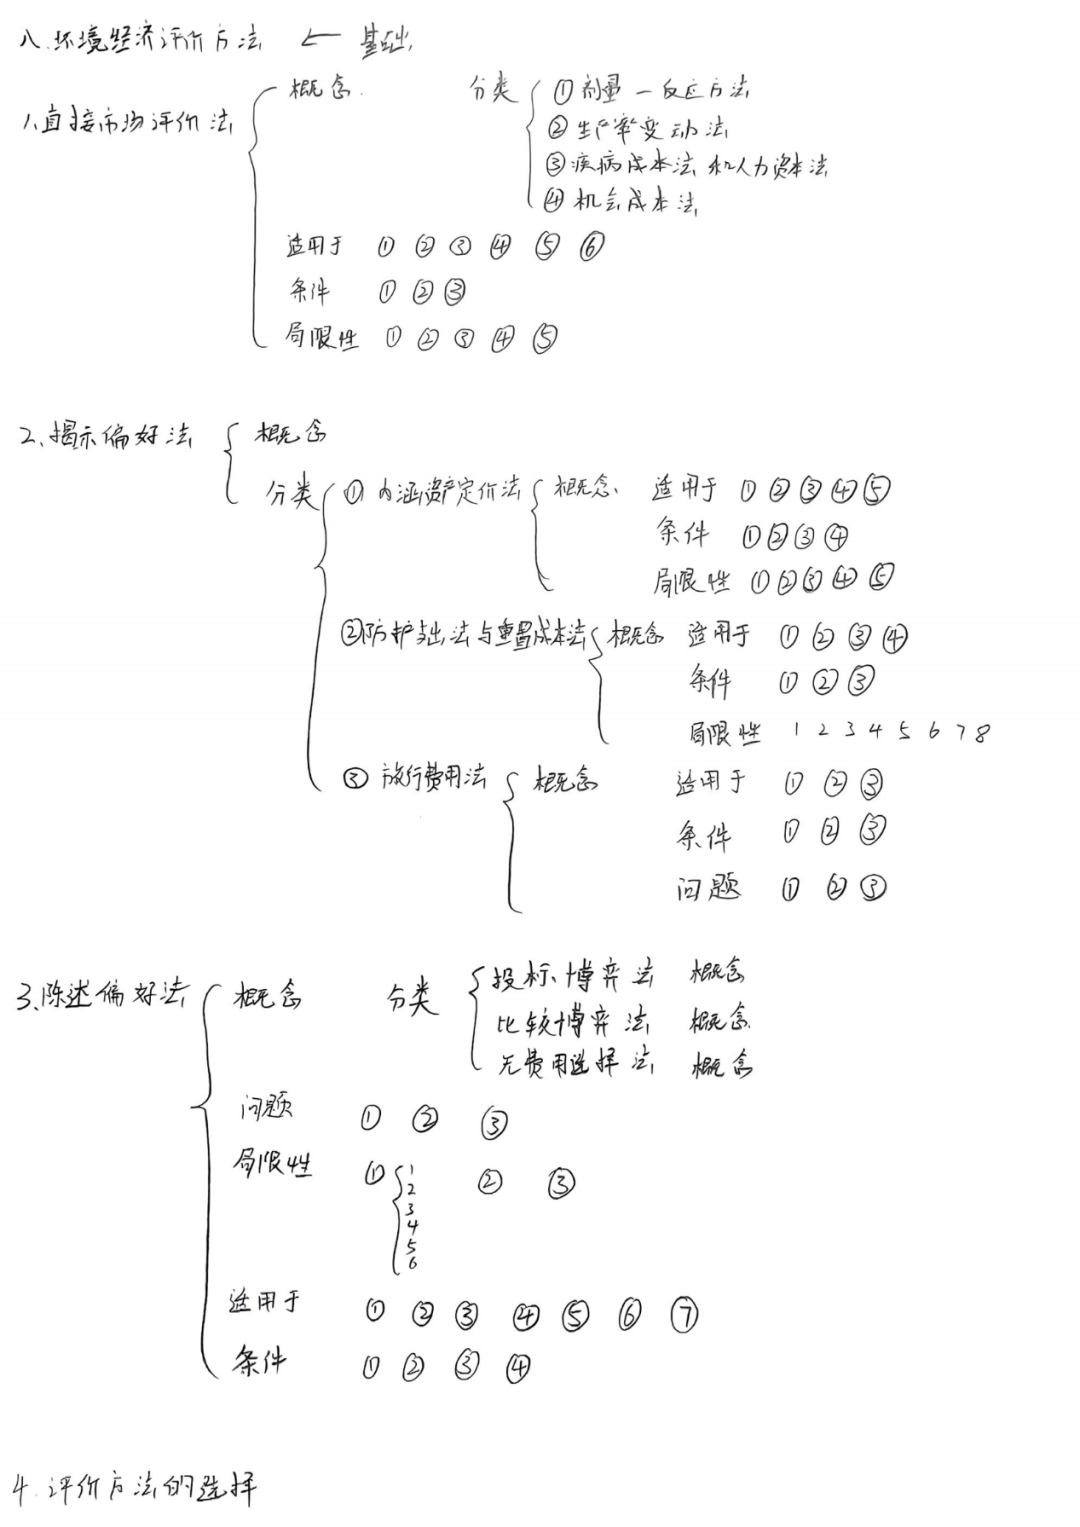 八.环境经济评价方法 ← 基础
1.直接市场评价法 概念. 分类 ①剂量—反应方法
②生产率变动法
③疾病成本法和人力资本法
④机会成本法
适用于 ① ② ③ ④ ⑤ ⑥
条件 ① ② ③
局限性 ① ② ③ ④ ⑤
2、揭示偏好法 概念
分类 ①内涵资产定价法 概念、 适用于 ① ② ③ ④ ⑤
条件 ① ② ③ ④
局限性 ① ② ③ ④ ⑤
②防护支出法与重置成本法 概念 适用于 ① ② ③ ④
条件 ① ② ③
局限性 1 2 3 4 5 6 7 8
③ 旅行费用法 概念 适用于 ① ② ③
条件 ① ② ③
问题 ① ② ③
3、陈述偏好法 概念 分类 投标博弈法 概念
比较博弈法 概念
无费用选择法 概念
问题 ① ② ③
局限性 ① 1 2 3 4 5 6 ② ③
适用于 ① ② ③ ④ ⑤ ⑥ ⑦
条件 ① ② ③ ④
4.评价方法的选择